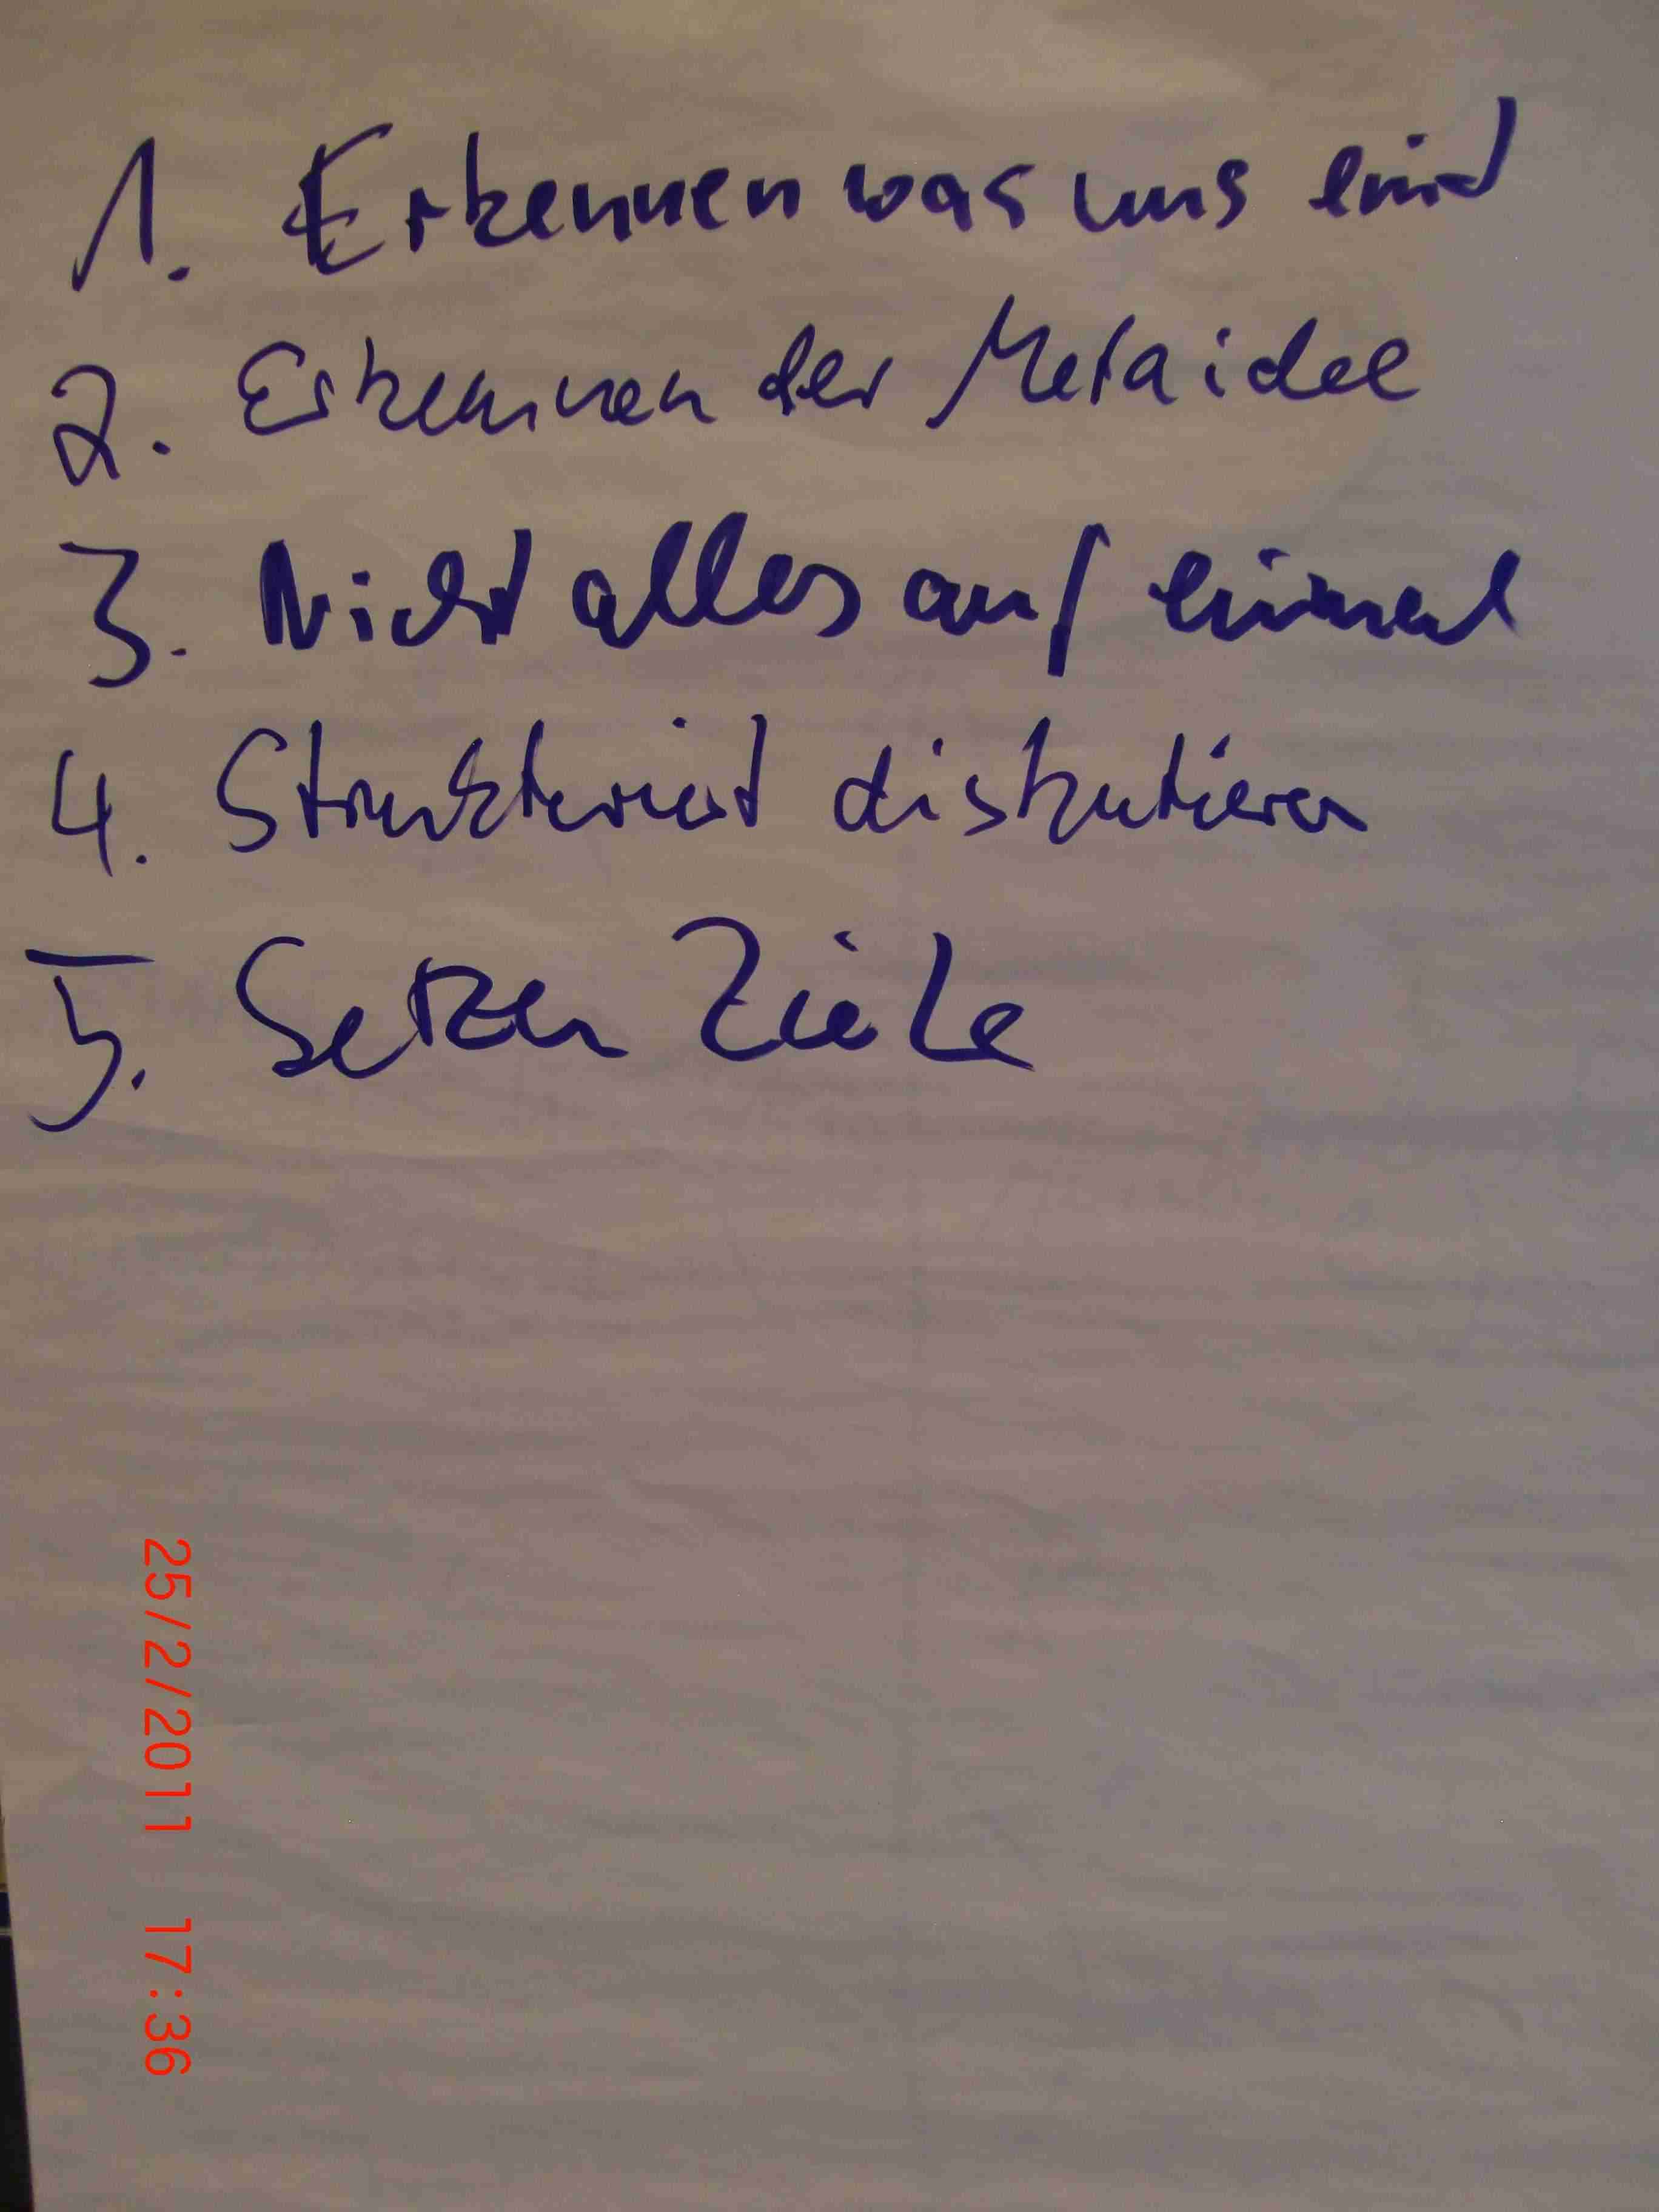 1. Erkennen was uns eind
2. Erkennen der Metaidee
3. Nicht alles auf einmal
4. Strukturiert diskutieren
5. Setzen Ziele
25/2/2011 17:36